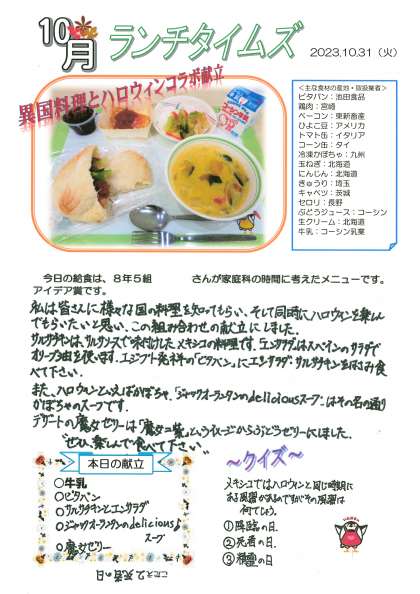 10月 ランチタイムズ
2023.10.31（火）
異国料理とハロウィンコラボ献立
＜主な食材の産地・取扱業者＞
ピタパン：池田食品
鶏肉：宮崎
ベーコン：東新畜産
ひよこ豆：アメリカ
トマト缶：イタリア
コーン缶：タイ
冷凍かぼちゃ：九州
玉ねぎ：北海道
にんじん：北海道
きゅうり：埼玉
キャベツ：茨城
セロリ：長野
ぶどうジュース：コーシン
生クリーム：北海道
牛乳：コーシン乳業
今日の給食は、８年５組 さんが家庭科の時間に考えたメニューです。
アイデア賞です。
私は皆さんに様々な国の料理を知ってもらい、そして同時にハロウィンを楽し
んでもらいたいと思い、この組み合わせの献立にしました。
サルサチキンは、サルサソースで味付けしたメキシコの料理です。エンサラダはスペインのサラダで
オリーブ油を使います。エジプト発祥の「ピタパン」にエンサラダ・サルサチキンをはさみ食
べて下さい。
また、ハロウィンといえばかぼちゃ。「ジャックオーランタンのdeliciousスープ」はその名の通り
かぼちゃのスープです。
デザートの魔女ゼリーは「魔女＝紫」というイメージからぶどうゼリーにしました。
ぜひ、楽しんで食べて下さい
本日の献立
○牛乳
○ピタパン
○サルサチキンとエンサラダ
○ジャックオーランタンのdelicious♪
スープ
○魔女ゼリー
～クイズ～
メキシコではハロウィンと同じ時期に
ある風習があるのですがその風習は
何でしょう。
①降臨の日。
②死者の日。
③精霊の日
こたえ②死者の日